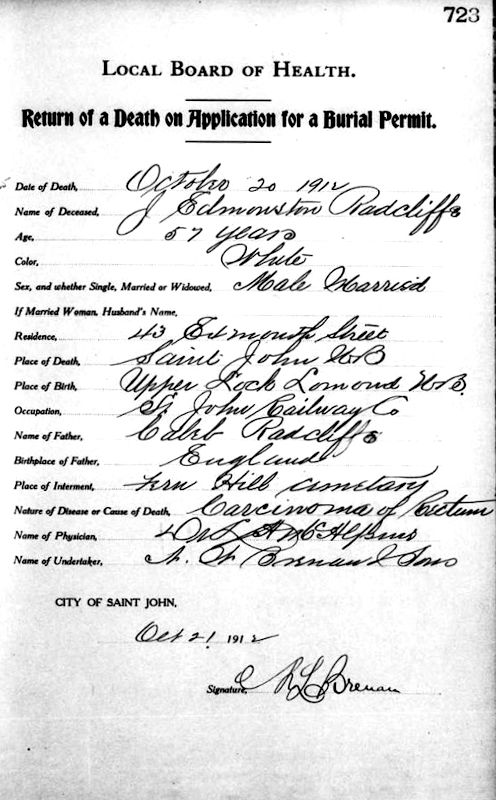 723
LOCAL BOARD OF HEALTH.
Return of a Death on Application for a Burial Permit.
Date of Death, October 20 1912
Name of Deceased, J Edmonston Radcliffe
Age, 57 years
Color, White
Sex, and whether Single, Married or Widowed, Male Married
If Married Woman, Husband's Name,
Residence, 43 Exmouth Street
Place of Death, Saint John NB
Place of Birth, Upper Loch Lomond NB.
Occupation, St. John Railway Co
Name of Father, Caleb Radcliffe
Birthplace of Father, England
Place of Interment, Fern Hill Cemetary
Nature of Disease or Cause of Death, Carcinoma of Rectum
Name of Physician, Dr
Name of Undertaker, N. W. Brenan & Sons
CITY OF SAINT JOHN,
Oct 21 1912
Signature, Brenan